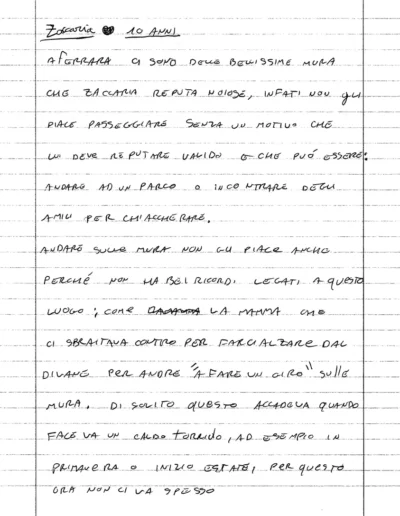 Zaccaria ♥ 10 ANNI
A FERRARA CI SONO DELLE BELLISSIME MURA
CHE ZACCARIA REPUTA NOIOSE, INFATI NON gli
PIACE PASSEGGIARE SENZA UN MOTIVO CHE
LUI DEVE REPUTARE VALIDO E CHE PUÓ ESSERE:
ANDARE AD UN PARCO O INCONTRARE DEGLI
AMICI PER CHIACCHERARE.
ANDARE SULLE MURA NON GLI PIACE ANCHE
PERCHÉ NON HA BEI RICORDI LEGATI A QUESTO
LUOGO; COME LA MAMMA CHE
CI SBRAITAVA CONTRO PER FARCI ALZARE DAL
DIVANO PER ANDRE "A FARE UN GIRO" SULLE
MURA. DI SOLITO QUESTO ACCADEVA QUANDO
FACEVA UN CALDO TORRIDO, AD ESEMPIO IN
PRIMAVERA O INIZIO ESTATE, PER QUESTO
ORA NON CI VA SPESSO